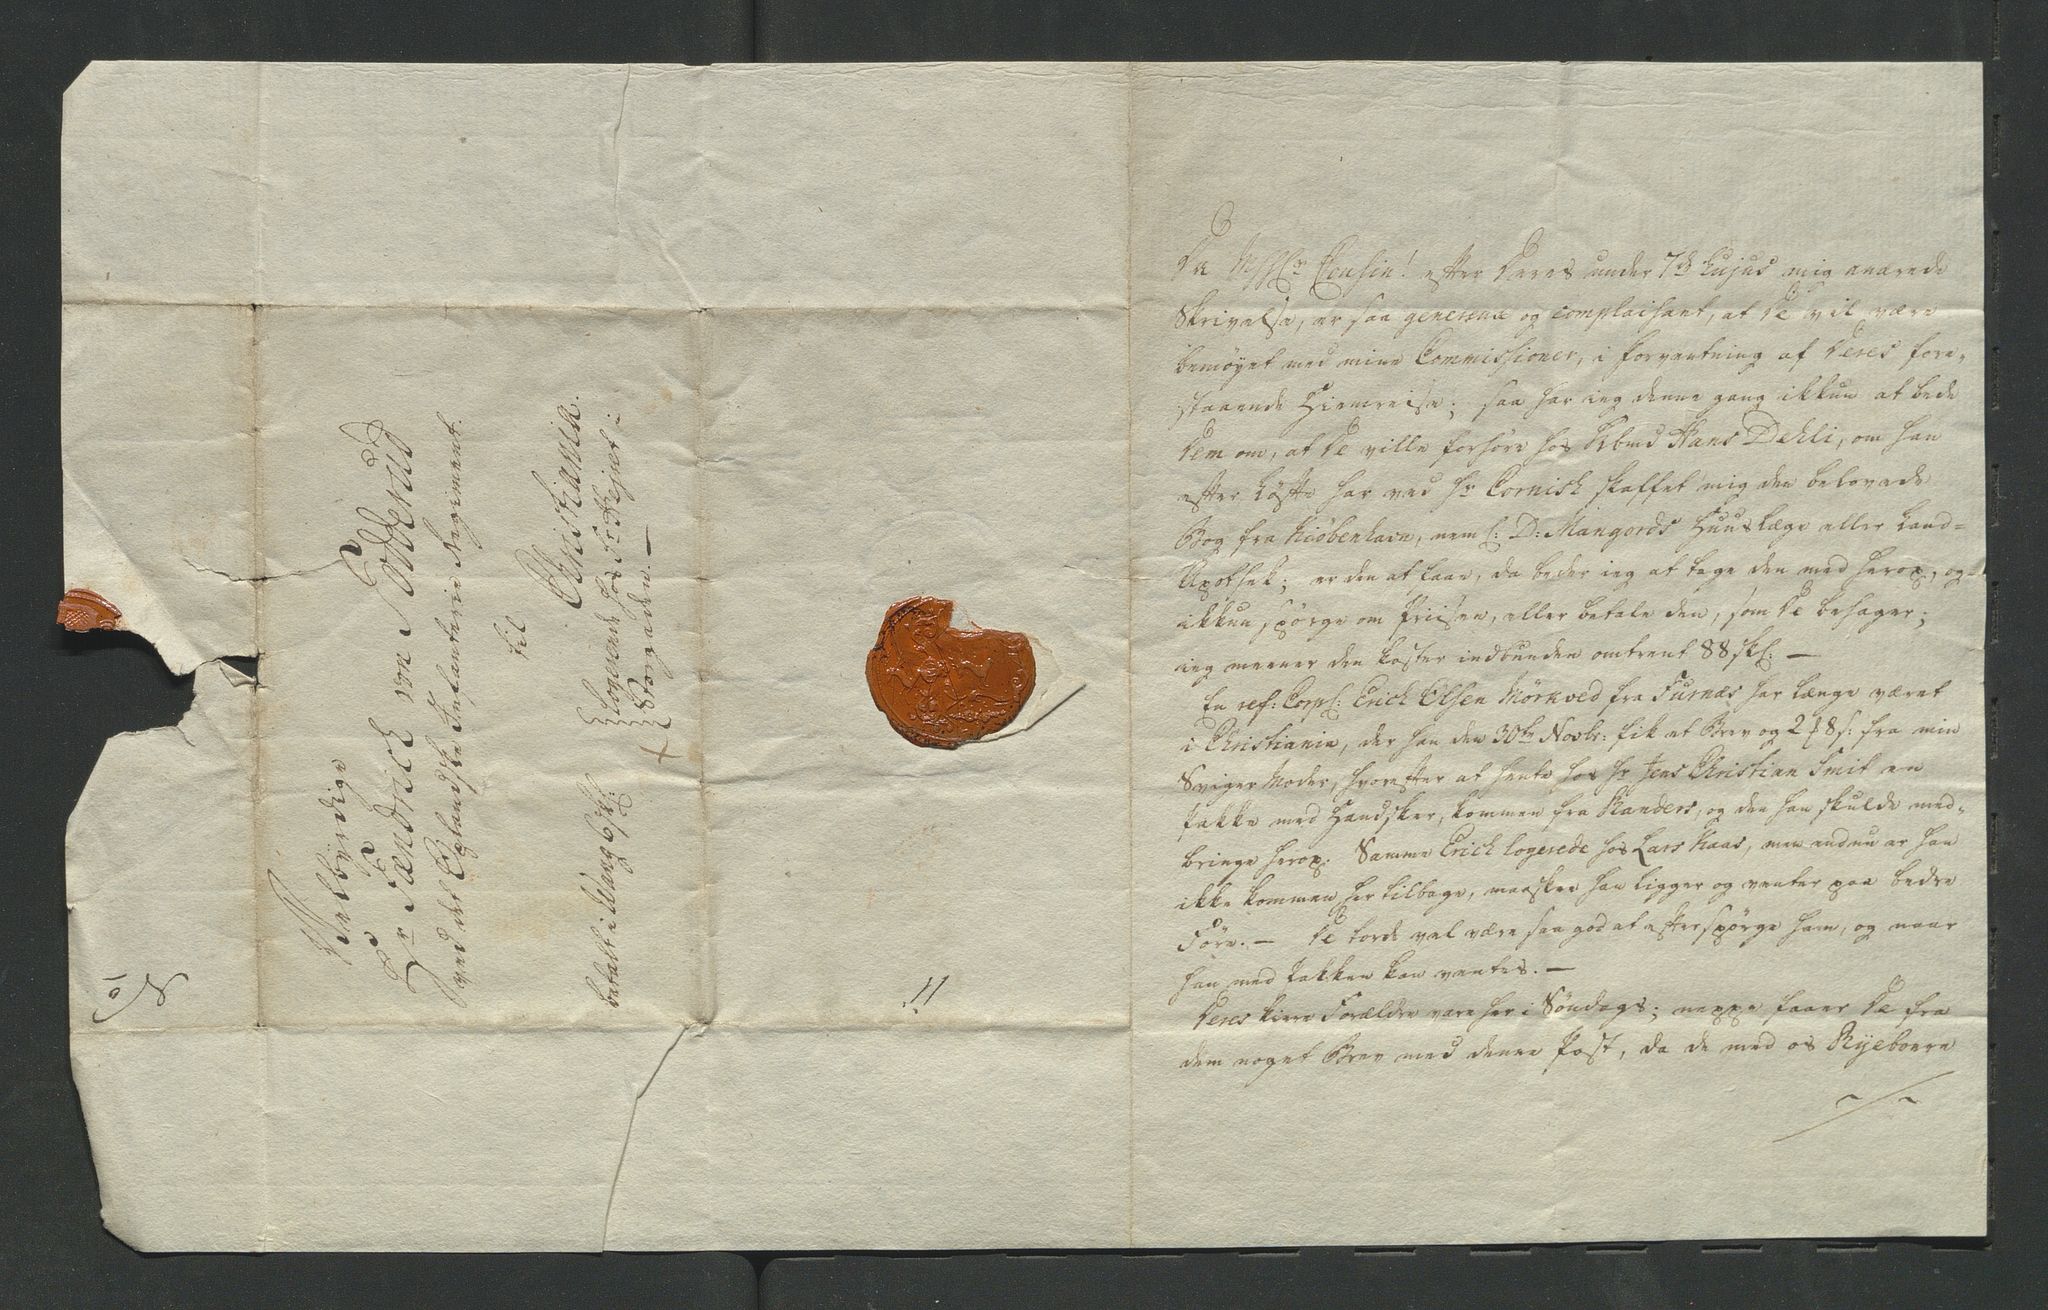 Velbyrdige
Hr Fændrick von Todderud
ved det Oplandske Infanterie Regiment.
til
Christiania.
Logerende hos Sr: Stejnet i
Storgaden. —
betalt i Wang 6 sk:
No
11
Da Hr Cousin! efter Deres under 7de hujus mig ærede
Skrivelse, er saa genereux og complaisant, at De vil være
bemøyet med mine Commissioner, i Forventning af Deres fore-
staaende Hiemreise; saa har ieg denne gang ikkun at bede
Dem om, at De ville forhøre hos Kbmd Hans Dehli, om han
efter Løfte har ved Hr Cornisk skaffet mig den belovede
Bog fra Kiøbenhavn, neml: D: Mangords Huuslæge eller Land-
Apothek; er den at faae, da beder ieg at tage den med herop, og
ikkun spørge om Priisen, eller betale den, som De behager;
ieg meener den koster indbunden omtrent 88 sk: —
En ref: Corpl: Erich Olsen Mörkved fra Furnæs har længe været
i Christiania, der han den 30te Novbr: fik et Brev og 2 f 8 s: fra min
Sviger Moder, hvorefter at hente hos Hr Jens Christian Smit en
Pakke med Handsker, kommen fra Randers, og den han skulde med-
bringe herop. Samme Erich logerede hos Lars Kaas, men endnu er han
ikke kommen her tilbage, maaskee han ligger og venter paa bedre
Före. — De torde vel være saa god at efterspørge ham, og naar
han med Pakken kan ventes. —
Deres kiere Forældre vare her i Søndags; neppe faaer De fra
dem noget Brev med denne Post, da de med os Ryeboere